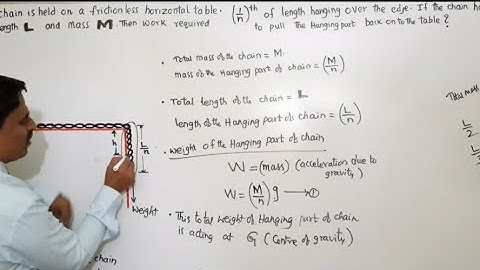 chain is held on a frictionless horizontal table. (L/n)th of length hanging over the edge. If the chain ha
length L and mass M. Then work required to pull the Hanging part back on to the table?
• Total mass of the chain = M.
mass of the Hanging part of chain = (M/n)
• Total length of the chain = L
length of the Hanging part of chain = (L/n)
• weight of the Hanging part of chain
W = (mass) (acceleration due to gravity)
W = (M/n) g → ①
• This total weight of Hanging part of chain
is acting at G (Centre of gravity)
h
L/n
weight
chain
Total mass
L/2
L